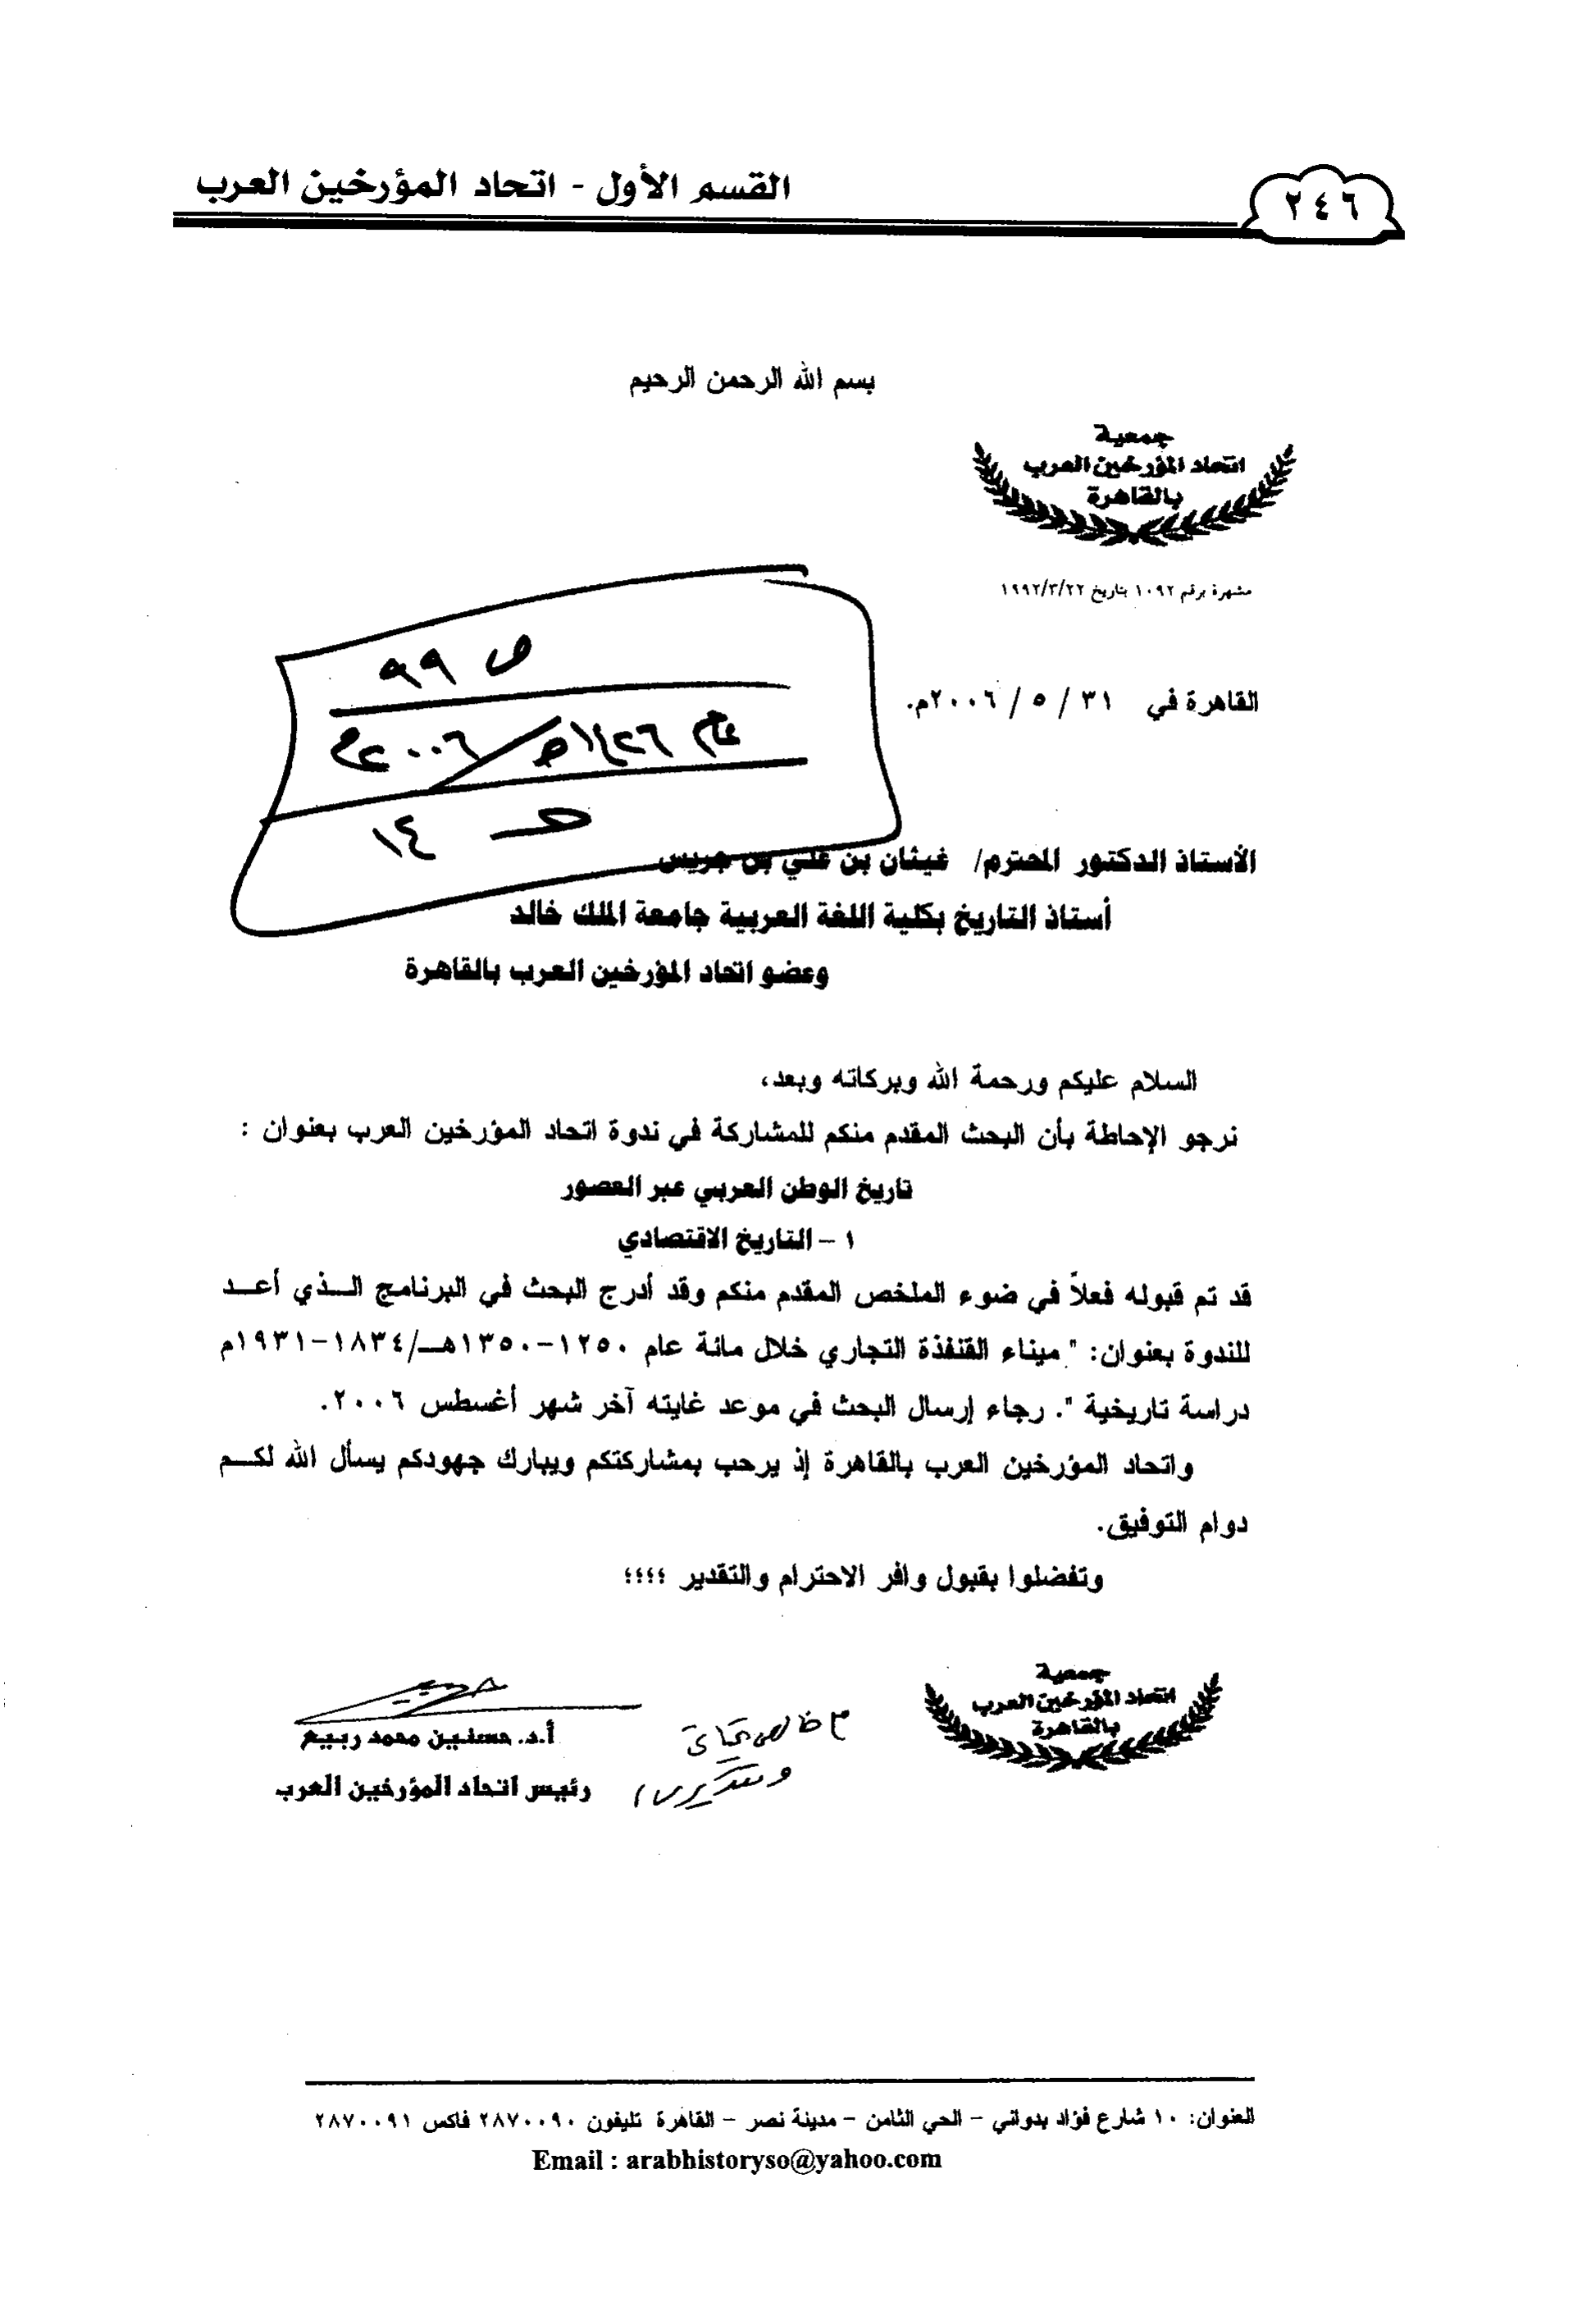 القسم الأول - اتحاد المؤرخين العرب
٢٤٦
بسم الله الرحمن الرحيم
جمعية
اتحاد المؤرخين العرب
بالقاهرة
مشهرة برقم ١٠٩٢ بتاريخ ١٩٩٢/٣/٢٢
ص ٩٩
القاهرة في ٣١ / ٥ / ٢٠٠٦م.
عام ١٤٢٦هـ/٢٠٠٦م
١٤
الأستاذ الدكتور المحترم/ غيثان بن علي بن جريس
أستاذ التاريخ بكلية اللغة العربية جامعة الملك خالد
وعضو اتحاد المؤرخين العرب بالقاهرة
السلام عليكم ورحمة الله وبركاته وبعد،
نرجو الإحاطة بأن البحث المقدم منكم للمشاركة في ندوة اتحاد المؤرخين العرب بعنوان :
تاريخ الوطن العربي عبر العصور
١ – التاريخ الاقتصادي
قد تم قبوله فعلاً في ضوء الملخص المقدم منكم وقد أدرج البحث في البرنامج الـذي أعـد
للندوة بعنوان: " ميناء القنفذة التجاري خلال مائة عام ١٢٥٠-١٣٥٠هـ/١٨٣٤-١٩٣١م
دراسة تاريخية ". رجاء إرسال البحث في موعد غايته آخر شهر أغسطس ٢٠٠٦.
واتحاد المؤرخين العرب بالقاهرة إذ يرحب بمشاركتكم ويبارك جهودكم يسأل الله لكـم
دوام التوفيق.
وتفضلوا بقبول وافر الاحترام والتقدير ؛؛؛؛
جمعية
اتحاد المؤرخين العرب
بالقاهرة
مع خالص تحياتي
وتقديري
أ.د. حسنين محمد ربيع
رئيس اتحاد المؤرخين العرب
العنوان: ١٠ شارع فؤاد بدواني – الحي الثامن – مدينة نصر – القاهرة تليفون ٢٨٧٠٠٩٠ فاكس ٢٨٧٠٠٩١
Email : arabhistoryso@yahoo.com